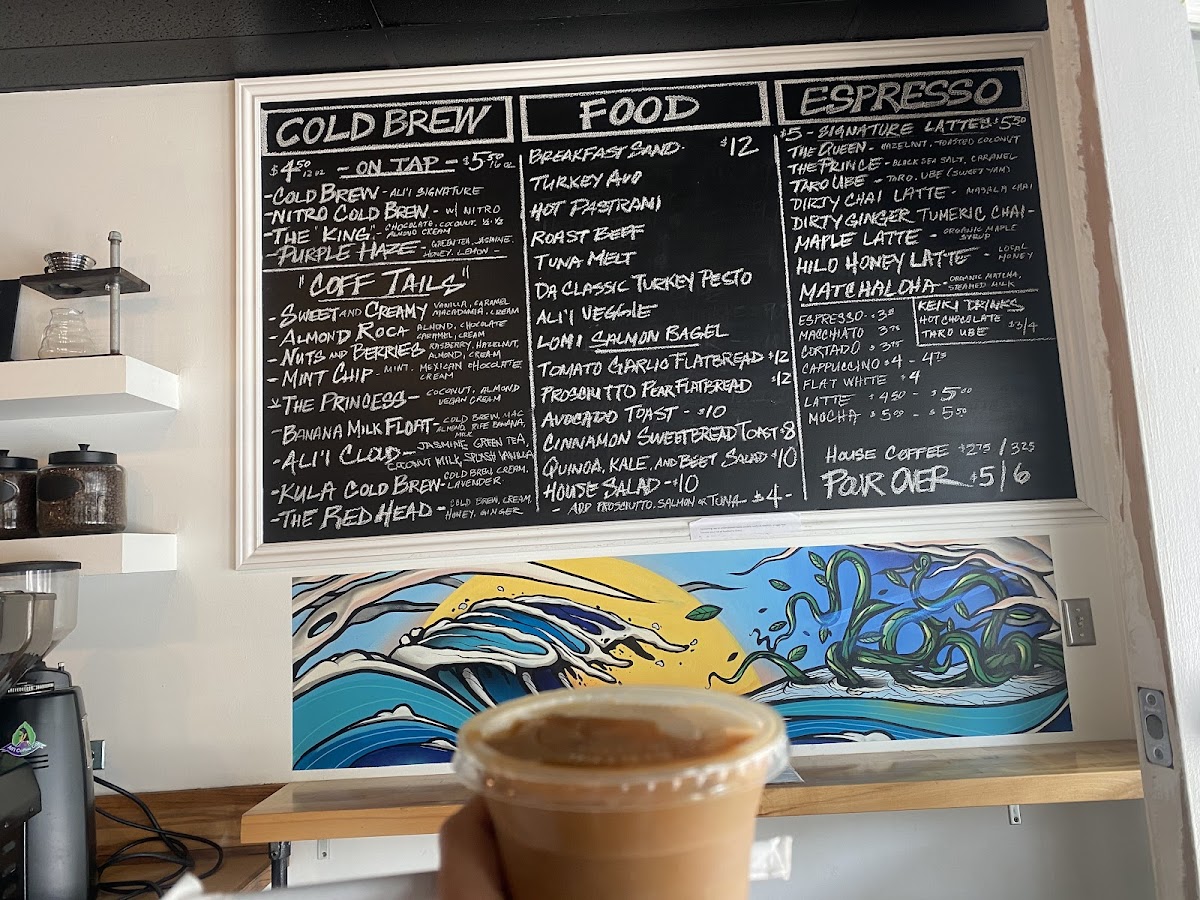 COLD BREW
$4.50 12 OZ - ON TAP - $5.50 16 OZ
- COLD BREW - ALI'I SIGNATURE
- NITRO COLD BREW - W/ NITRO
- THE "KING" - CHOCOLATE, COCONUT, ½ ½
ALMOND CREAM
- PURPLE HAZE - GREEN TEA, JASMINE,
HONEY, LEMON
"COFF TAILS"
- SWEET AND CREAMY VANILLA, CARAMEL
MACADAMIA, CREAM
- ALMOND ROCA ALMOND, CHOCOLATE
CARAMEL, CREAM
- NUTS AND BERRIES RASPBERRY, HAZELNUT,
ALMOND, CREAM
- MINT CHIP - MINT, MEXICAN CHOCOLATE,
CREAM
THE PRINCESS - COCONUT, ALMOND
VEGAN CREAM
- BANANA MILK FLOAT - COLD BREW, MAC
ALMOND, RIPE BANANA,
MILK
- ALI'I CLOUD - JASMINE GREEN TEA,
COCONUT MILK, SPLASH VANILLA
- KULA COLD BREW - COLD BREW, CREAM,
LAVENDER
- THE RED HEAD - COLD BREW, CREAM,
HONEY, GINGER
FOOD
BREAKFAST SAND $12
TURKEY AVO
HOT PASTRAMI
ROAST BEEF
TUNA MELT
DA CLASSIC TURKEY PESTO
ALI'I VEGGIE
LOMI SALMON BAGEL
TOMATO GARLIC FLATBREAD $12
PROSCIUTTO PEAR FLATBREAD $12
AVOCADO TOAST - $10
CINNAMON SWEETBREAD TOAST $8
QUINOA, KALE, AND BEET SALAD $10
HOUSE SALAD - $10
- ADD PROSCIUTTO, SALMON OR TUNA - $4 -
ESPRESSO
$5 - SIGNATURE LATTES $5.50
THE QUEEN - HAZELNUT, TOASTED COCONUT
THE PRINCE - BLACK SEA SALT, CARAMEL
TARO UBE - TARO, UBE (SWEET YAM)
DIRTY CHAI LATTE - MASALA CHAI
DIRTY GINGER TUMERIC CHAI -
MAPLE LATTE - ORGANIC MAPLE
SYRUP
HILO HONEY LATTE - LOCAL
HONEY
MATCHALOHA - ORGANIC MATCHA,
STEAMED MILK
ESPRESSO - 3
MACCHIATO 3.75
CORTADO $3.75
CAPPUCCINO $4 - 4.75
FLAT WHITE $4
LATTE $4.50 - $5.00
MOCHA $5.00 - $5.50
KEIKI DRINKS
HOT CHOCOLATE
TARO UBE $3/4
HOUSE COFFEE $2.75 / 3.25
POUR OVER $5/6